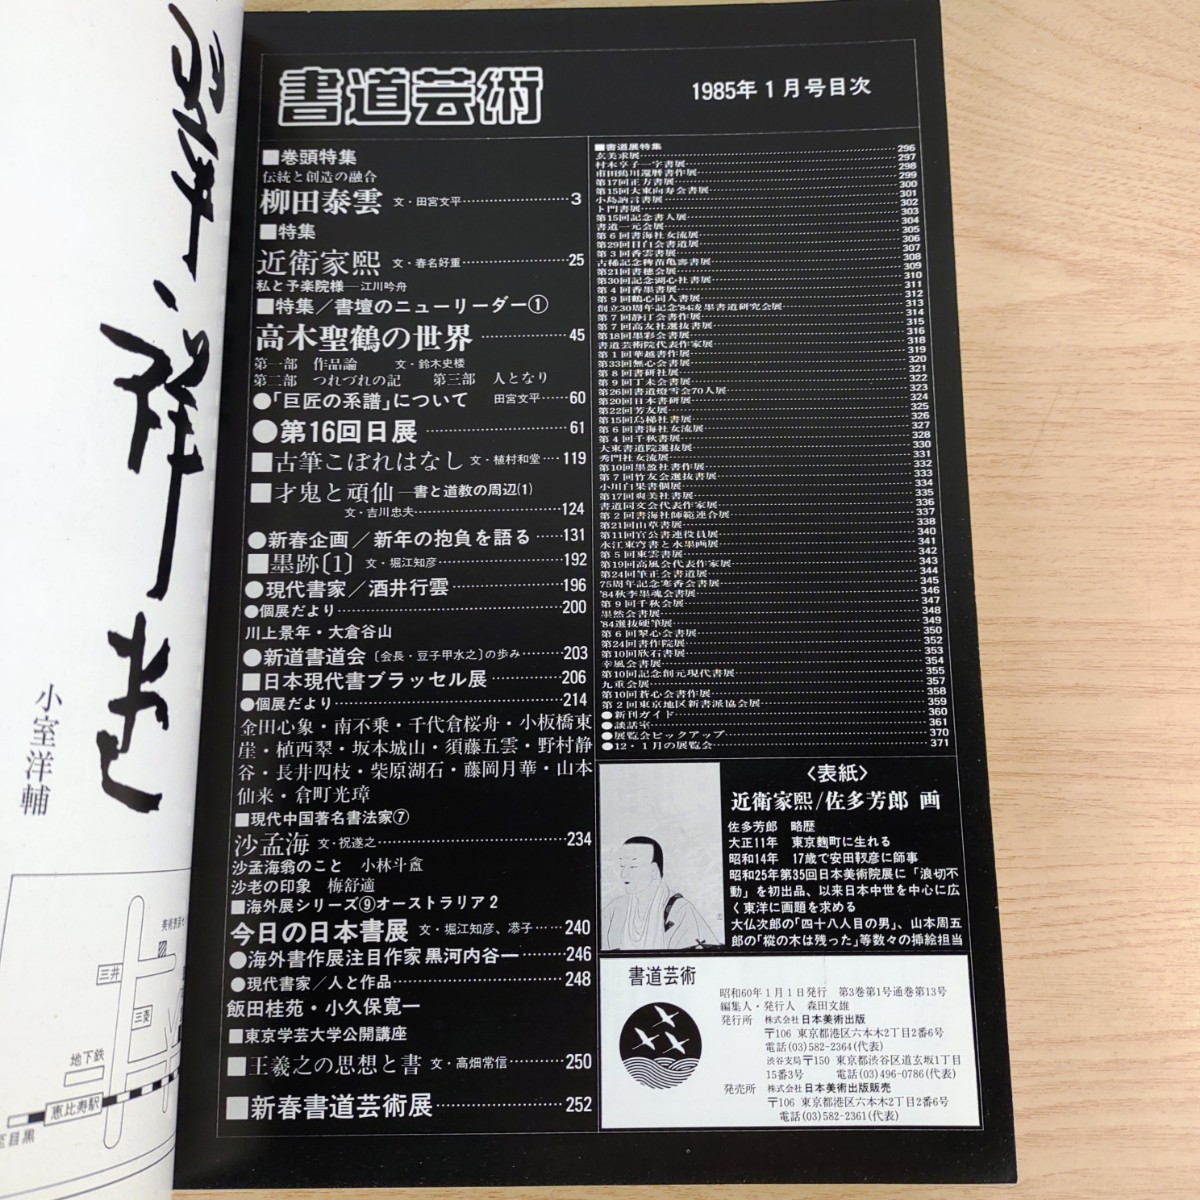 書道芸術
1985年1月号目次
■巻頭特集
伝統と創造の融合
柳田泰雲 文・田宮文平 3
■特集
近衛家熙 文・春名好重 25
私と予楽院様―江川吟舟
■特集/書壇のニューリーダー①
高木聖鶴の世界 45
第一部 作品論 文・鈴木史楼
第二部 つれづれの記 第三部 人となり
●「巨匠の系譜」について 田宮文平 60
●第16回日展 61
■古筆こぼれはなし 文・植村和堂 119
■才鬼と頑仙―書と道教の周辺(1)
文・吉川忠夫 124
●新春企画/新年の抱負を語る 131
■墨跡〔1〕 文・堀江知彦 192
●現代書家/酒井行雲 196
●個展だより 200
川上景年・大倉谷山
●新道書道会〔会長・豆子甲水之〕の歩み 203
■日本現代書ブラッセル展 206
●個展だより 214
金田心象・南不乗・千代倉桜舟・小板橋東
崖・植西翠・坂本城山・須藤五雲・野村静
谷・長井四枝・柴原湖石・藤岡月華・山本
仙来・倉町光璋
■現代中国著名書法家⑦
沙孟海 文・祝遂之 234
沙孟海翁のこと 小林斗盦
沙老の印象 梅舒適
■海外展シリーズ⑨オーストラリア2
今日の日本書展 文・堀江知彦、恭子 240
●海外書作展注目作家 黒河内谷一 246
●現代書家/人と作品 248
飯田桂苑・小久保寛一
■東京学芸大学公開講座
■王羲之の思想と書 文・高畑常信 250
■新春書道芸術展 252
■書道展特集 296
玄美求展 297
村木享子一字書展 298
市田鴎川還暦書作展 299
第17回正方書展 300
第15回大東向寿会書展 301
小島訥言書展 302
卜門書展 303
第15回記念書人展 304
書道一元会展 305
第6回書海社女流展 306
第29回日白会書道展 307
第3回香雲書展 308
古稀記念稗苗亀壽書展 309
第21回書穂会展 310
第30回記念湖心社書展 311
第4回香墨書展 312
第9回鶴心同人書展 313
創立30周年記念'84凌墨書道研究会展 314
第7回静汀会書作展 315
第7回高友社選抜書展 316
第18回墨彩会書展 318
書道芸術院代表作家展 319
第1回華越書作展 320
第33回無心会書展 321
第8回書研社展 322
第9回丁未会書展 323
第26回書道燈雪会70人展 324
第20回日本書研展 325
第22回芳友展 326
第15回烏梯社書展 327
第6回書海社女流展 328
第4回千秋書展 330
大東書道院選抜展 331
秀門社女流展 332
第10回墨盈社書作展 333
第7回竹友会選抜書展 334
小川白果書個展 335
第17回爽美社書展 336
書道同文会代表作家展 337
第2回書海社師範連合展 338
第21回山草書展 340
第11回官公書連役員展 341
水江東穹書と水墨画展 342
第5回東雲書展 343
第19回高風会代表作家展 344
第24回筆正会書道展 345
75周年記念寒香会書展 346
'84秋季墨魂会書展 347
第9回千秋会展 348
果然会書展 349
'84選抜硬筆展 350
第6回翠心会書展 352
第24回書作院展 353
第10回欣石書展 354
幸風会書展 355
第10回記念創元現代書展 357
九重会展 358
第10回蒼心会書作展 359
第2回東京地区新書派協会展 360
●新刊ガイド 361
●談話室 370
●展覧会ピックアップ 371
●12・1月の展覧会
〈表紙〉
近衛家熙/佐多芳郎 画
佐多芳郎 略歴
大正11年 東京麹町に生れる
昭和14年 17歳で安田靫彦に師事
昭和25年第35回日本美術院展に「浪切不
動」を初出品、以来日本中世を中心に広
く東洋に画題を求める
大仏次郎の「四十八人目の男」、山本周五
郎の「樅の木は残った」等数々の挿絵担当
書道芸術
昭和60年1月1日発行 第3巻第1号通巻第13号
編集人・発行人 森田文雄
発行所 株式会社日本美術出版
〒106 東京都港区六本木2丁目2番6号
電話(03)582-2364(代表)
渋谷支局〒150 東京都渋谷区道玄坂1丁目
15番3号 電話(03)496-0786(代表)
発売所 株式会社日本美術出版販売
〒106 東京都港区六本木2丁目2番6号
電話(03)582-2361(代表)
小室洋輔
三井
三菱
地下鉄
恵比寿駅
至目黒